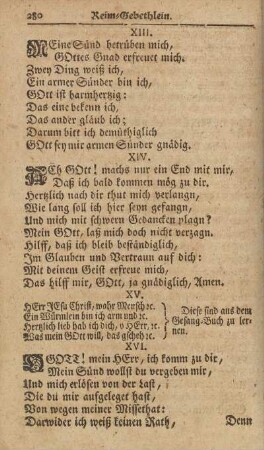 280 Reim-Gebethlein.
XIII.
MEine Sünd betrüben mich,
GOttes Gnad erfreuet mich.
Zwey Ding weiß ich,
Ein armer Sünder bin ich,
GOtt ist barmhertzig:
Das eine bekenn ich,
Das ander gläub ich:
Darum bitt ich demüthiglich
GOtt sey mir armen Sünder gnädig.
XIV.
ACh GOtt! machs nur ein End mit mir,
Daß ich bald kommen mög zu dir.
Hertzlich nach dir thut mich verlangn,
Wie lang soll ich hier seyn gefangn,
Und mich mit schwern Gedancken plagn?
Mein GOtt, laß mich doch nicht verzagn.
Hilff, daß ich bleib beständiglich,
Im Glauben und Vertraun auf dich:
Mit deinem Geist erfreue mich,
Das hilff mir, GOtt, ja gnädiglich, Amen.
XV.
HErr JEsu Christ, wahr Mensch ꝛc.
Ein Würmlein bin ich arm und ꝛc.
Hertzlich lieb hab ich dich, o HErr, ꝛc.
Was mein GOtt will, das gscheh ꝛc.
Diese sind aus dem
Gesang-Buch zu ler-
nen.
XVI.
O GOTT! mein HErr, ich komm zu dir,
Mein Sünd wollst du vergeben mir,
Und mich erlösen von der Last,
Die du mir aufgeleget hast,
Von wegen meiner Missethat:
Darwider ich weiß keinen Rath,
Denn